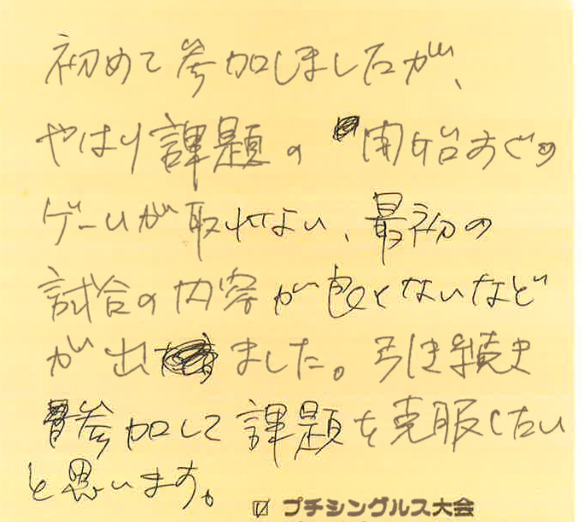 初めて参加しましたが、
やはり課題の開始すぐの
ゲームが取れない、最初の
試合の内容が良くないなど
が出ました。引き続き
参加して課題を克服したい
と思います。
☑ プチシングルス大会